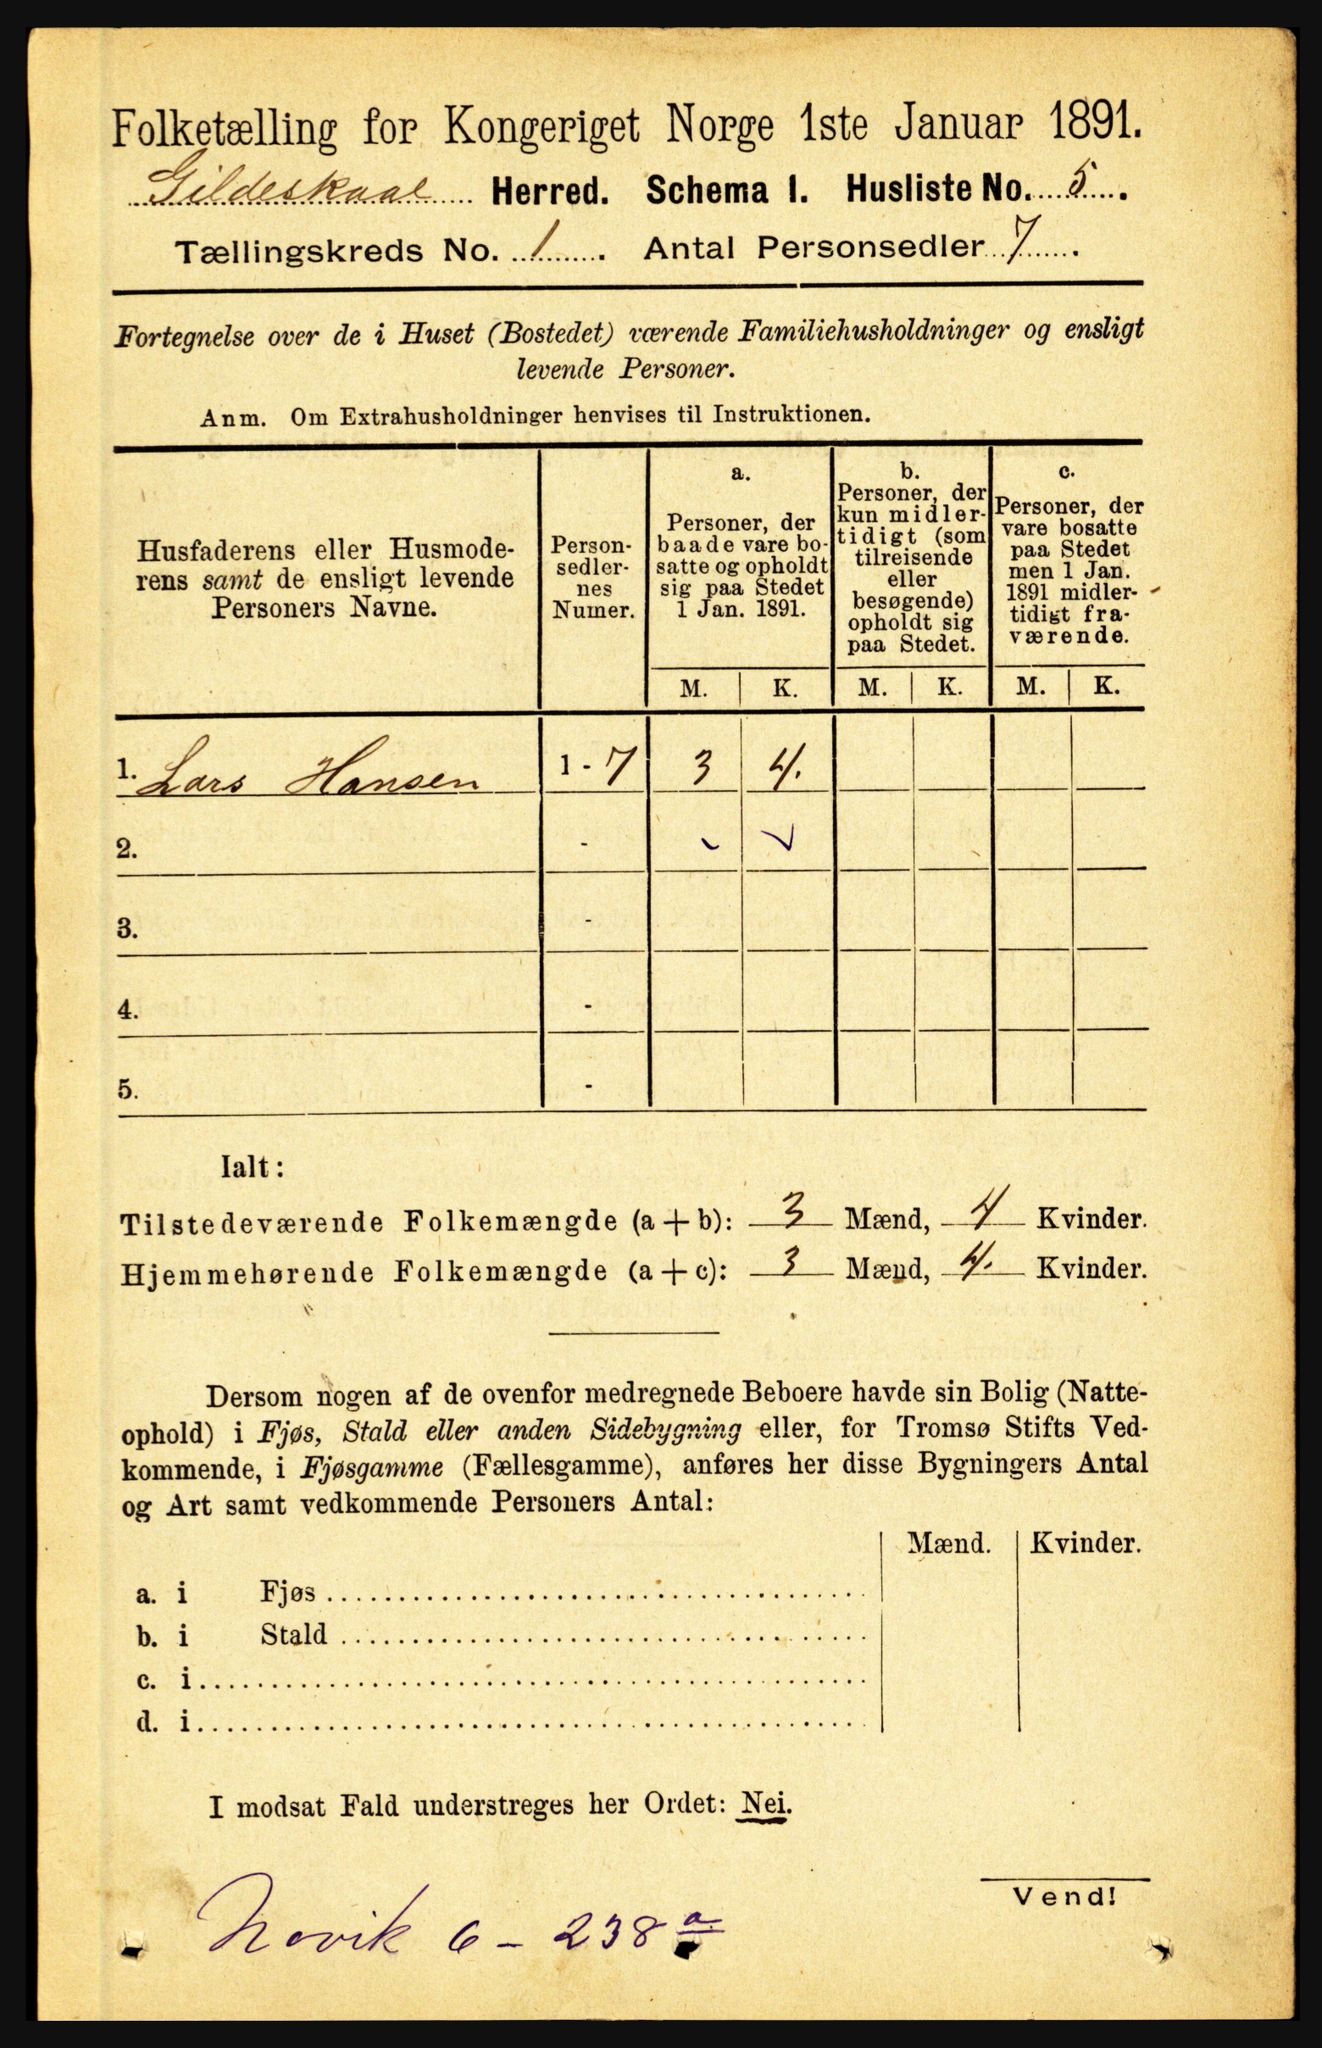 Folketælling for Kongeriget Norge 1ste Januar 1891.
Gildeskaal Herred. Schema I. Husliste No. 5.
Tællingskreds No. 1. Antal Personsedler 7.
Fortegnelse over de i Huset (Bostedet) værende Familiehusholdninger og ensligt
levende Personer.
Anm. Om Extrahusholdninger henvises til Instruktionen.
Husfaderens eller Husmode-
rens samt de ensligt levende
Personers Navne.
Person-
sedler-
nes
Numer.
a.
Personer, der
baade vare bo-
satte og opholdt
sig paa Stedet
1 Jan. 1891.
b.
Personer, der
kun midler-
tidigt (som
tilreisende
eller
besøgende)
opholdt sig
paa Stedet.
c.
Personer, der
vare bosatte
paa Stedet
men 1 Jan.
1891 midler-
tidigt fra-
værende.
M. K. M. K. M. K.
1. Lars Hansen 1 - 7 3 4.
2. -
3. -
4. -
5. -
Ialt:
Tilstedeværende Folkemængde (a + b): 3 Mænd, 4 Kvinder.
Hjemmehørende Folkemængde (a + c): 3 Mænd, 4. Kvinder.
Dersom nogen af de ovenfor medregnede Beboere havde sin Bolig (Natte-
ophold) i Fjøs, Stald eller anden Sidebygning eller, for Tromsø Stifts Ved-
kommende, i Fjøsgamme (Fællesgamme), anføres her disse Bygningers Antal
og Art samt vedkommende Personers Antal:
Mænd. Kvinder.
a. i Fjøs
b. i Stald
c. i
d. i
I modsat Fald understreges her Ordet: Nei.
Vend!
Novik 6 - 238 a